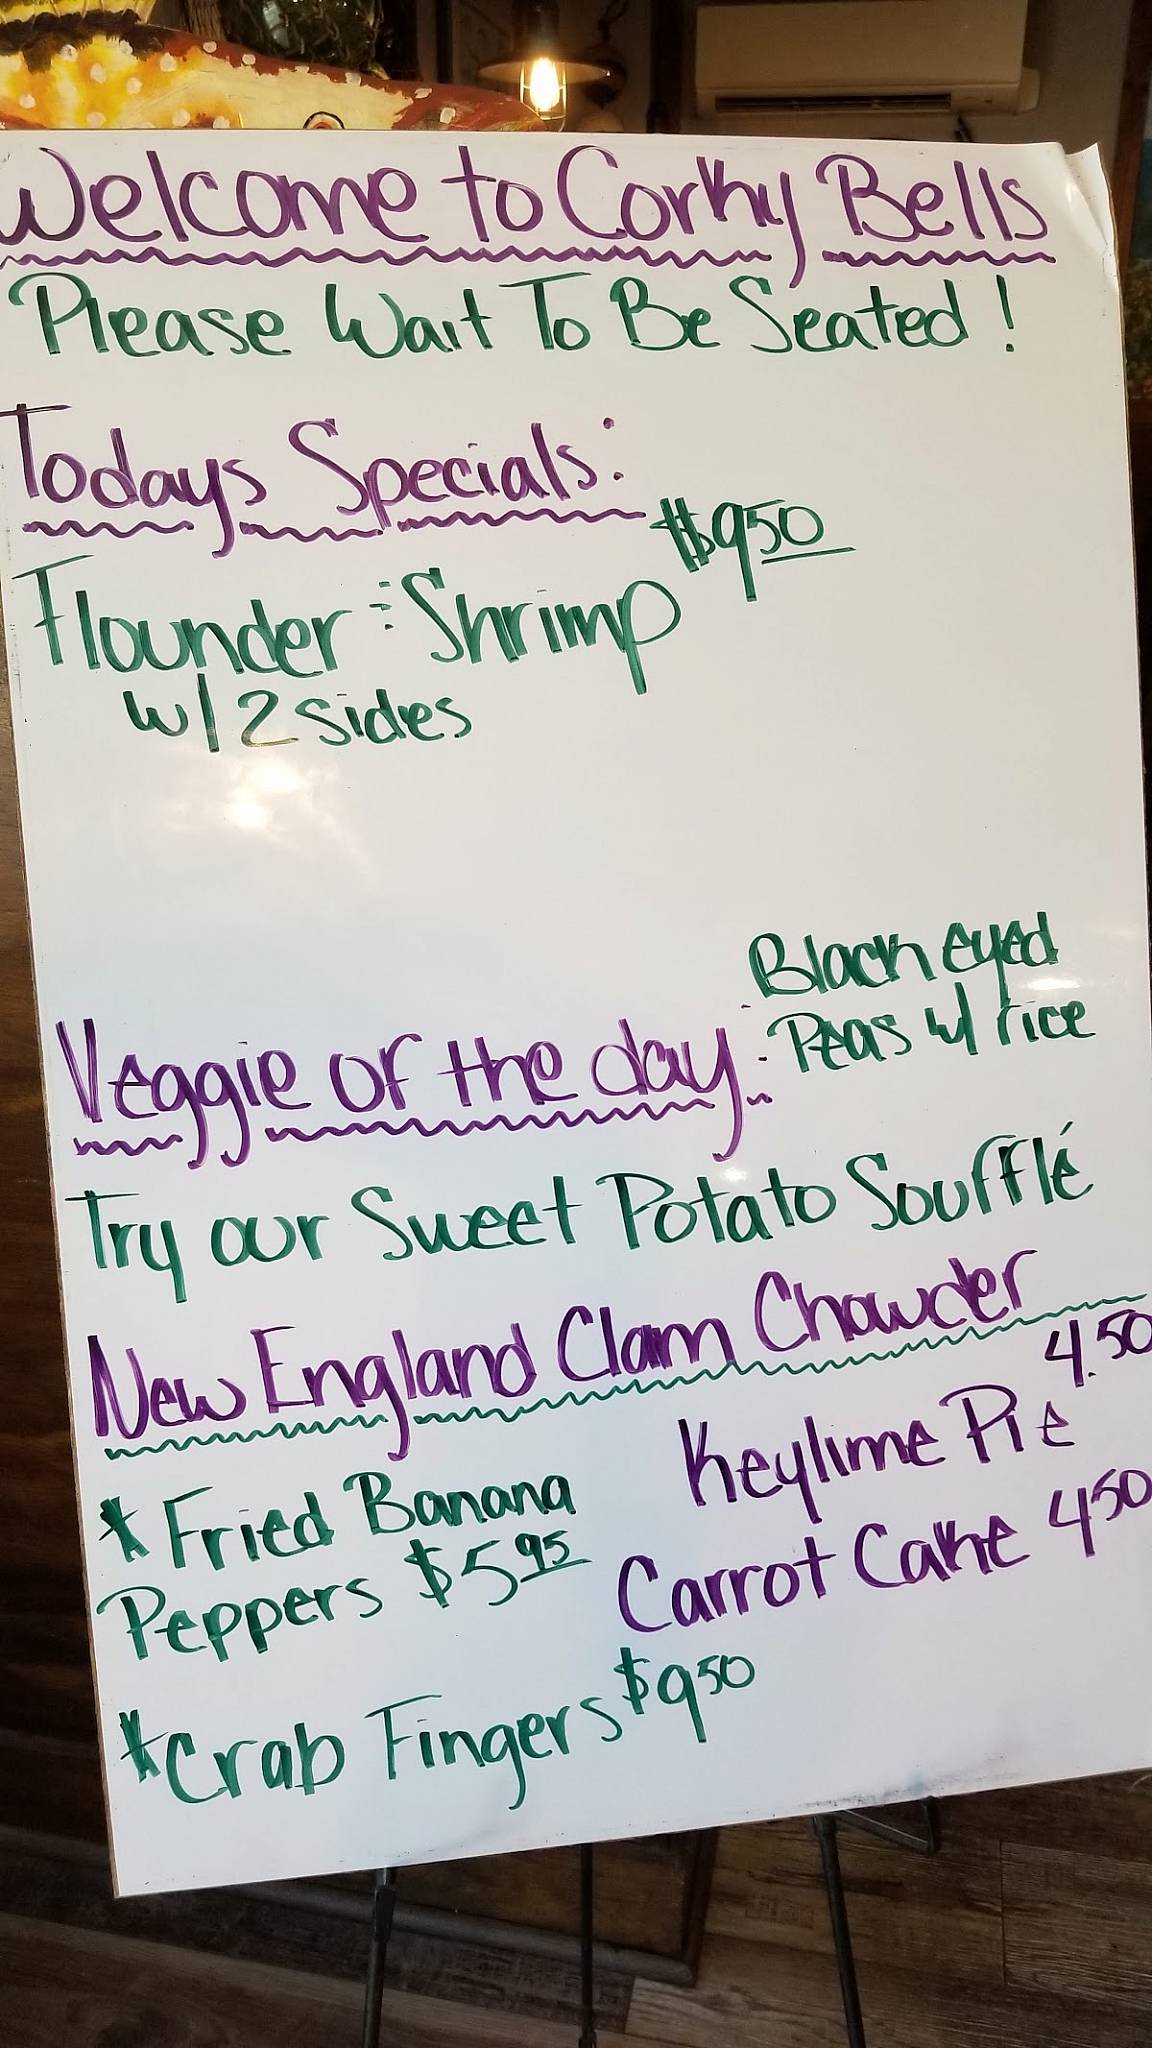 Welcome to Corky Bells
Please Wait To Be Seated!
Todays Specials:
$9.50
Flounder : Shrimp
w/ 2 sides
Black eyed
Peas w/ rice
Veggie of the day:
Try our Sweet Potato Soufflé
New England Clam Chowder
4.50
Keylime Pie
* Fried Banana
Peppers $5.95
Carrot Cake 4.50
* Crab Fingers $9.50